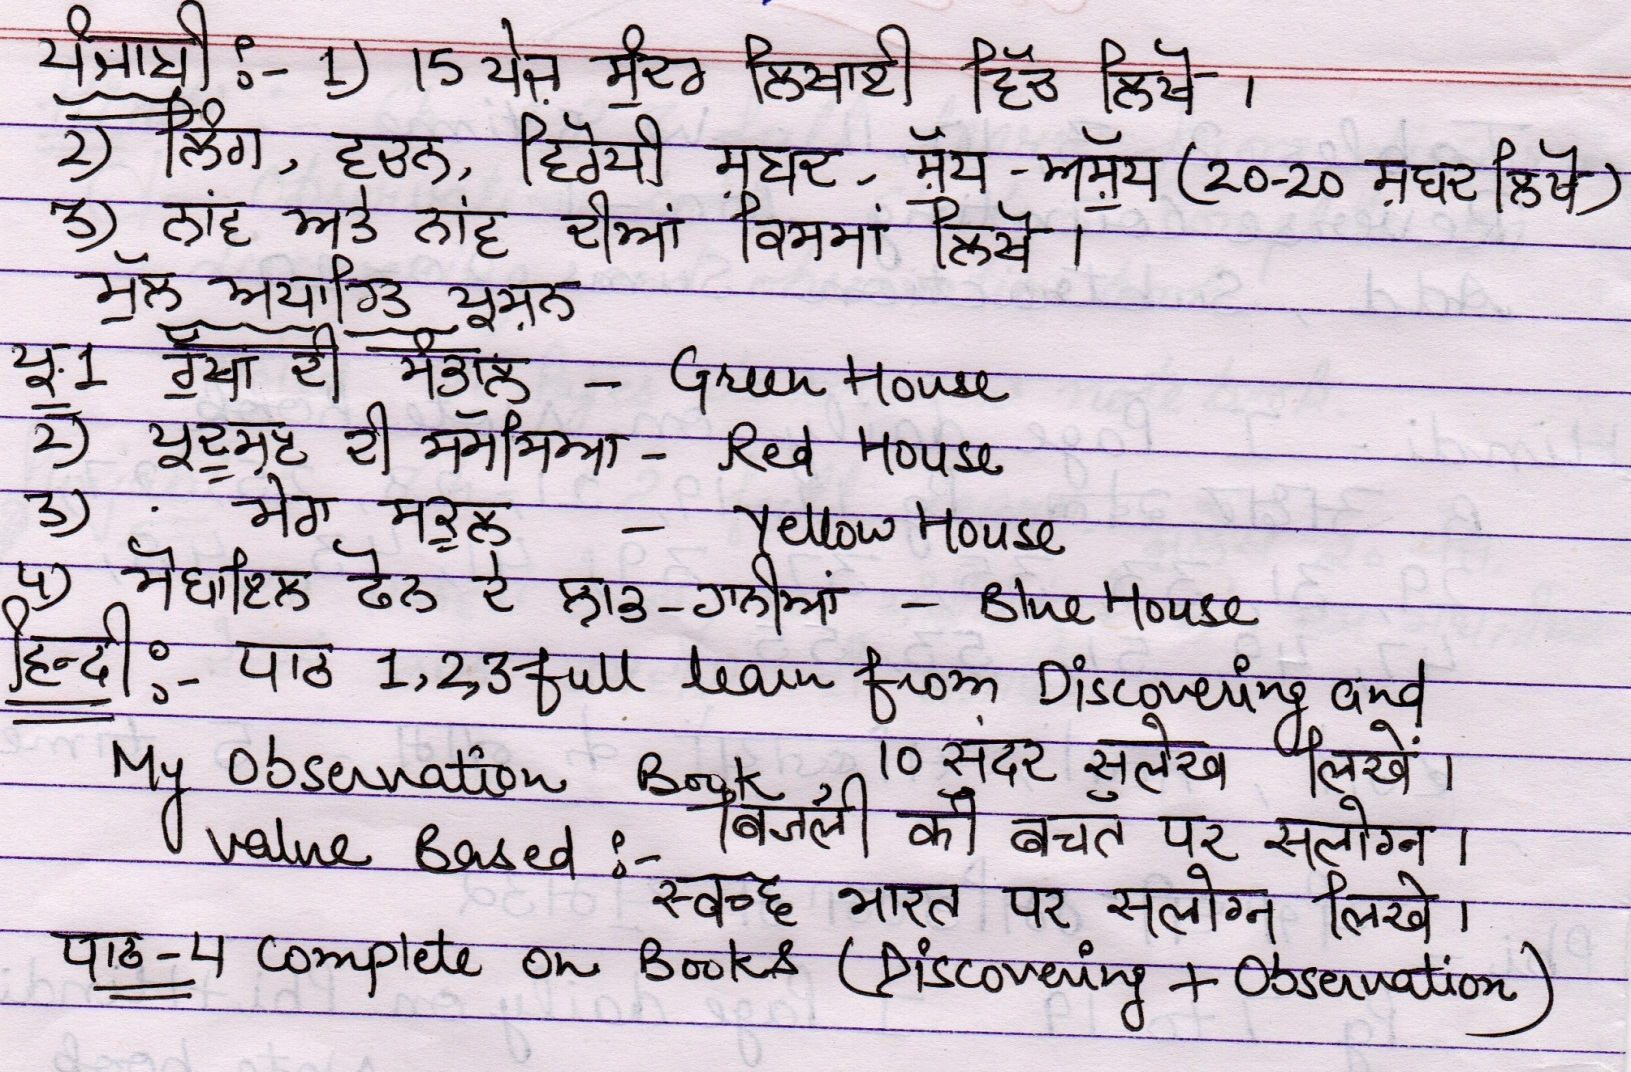 ਪੰਜਾਬੀ :- 1) 15 ਪੇਜ਼ ਸੁੰਦਰ ਲਿਖਾਈ ਵਿੱਚ ਲਿਖੋ ।
2) ਲਿੰਗ, ਵਚਨ, ਵਿਰੋਧੀ ਸ਼ਬਦ, ਸ਼ੁੱਧ - ਅਸ਼ੁੱਧ (20-20 ਸ਼ਬਦ ਲਿਖੋ)
3) ਨਾਂਵ ਅਤੇ ਨਾਂਵ ਦੀਆਂ ਕਿਸਮਾਂ ਲਿਖੋ ।
ਮੁੱਲ ਅਧਾਰਿਤ ਪ੍ਰਸ਼ਨ
ਪ੍ਰ.1 ਰੁੱਖਾਂ ਦੀ ਸੰਭਾਲ - Green House
2) ਪ੍ਰਦੂਸ਼ਣ ਦੀ ਸਮੱਸਿਆ - Red House
3) ਮੇਰਾ ਸਕੂਲ - Yellow House
4) ਮੋਬਾਇਲ ਫੋਨ ਦੇ ਲਾਭ-ਹਾਨੀਆਂ - Blue House
हिन्दी :- पाठ 1,2,3 full learn from Discovering and
My Observation Book 10 सुंदर सुलेख लिखें ।
value Based :- बिजली की बचत पर सलोगन ।
स्वच्छ भारत पर सलोगन लिखे ।
पाठ-4 Complete on Books (Discovering + Observation)